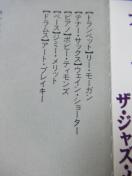 【トランペット】リー・モーガン
【テナー・サックス】ウェイン・ショーター
【ピアノ】ボビー・ティモンズ
【ベース】ジミー・メリット
【ドラムス】アート・ブレイキー
ザ・ジャズ・